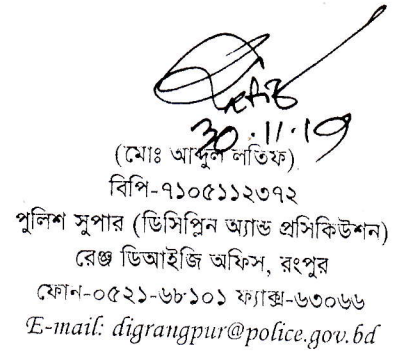 30.11.19
(মোঃ আব্দুল লতিফ)
বিপি-৭১০৫১১২৩৭২
পুলিশ সুপার (ডিসিপ্লিন অ্যান্ড প্রসিকিউশন)
রেঞ্জ ডিআইজি অফিস, রংপুর
ফোন-০৫২১-৬৮১০১ ফ্যাক্স-৬৩০৬৬
E-mail: digrangpur@police.gov.bd